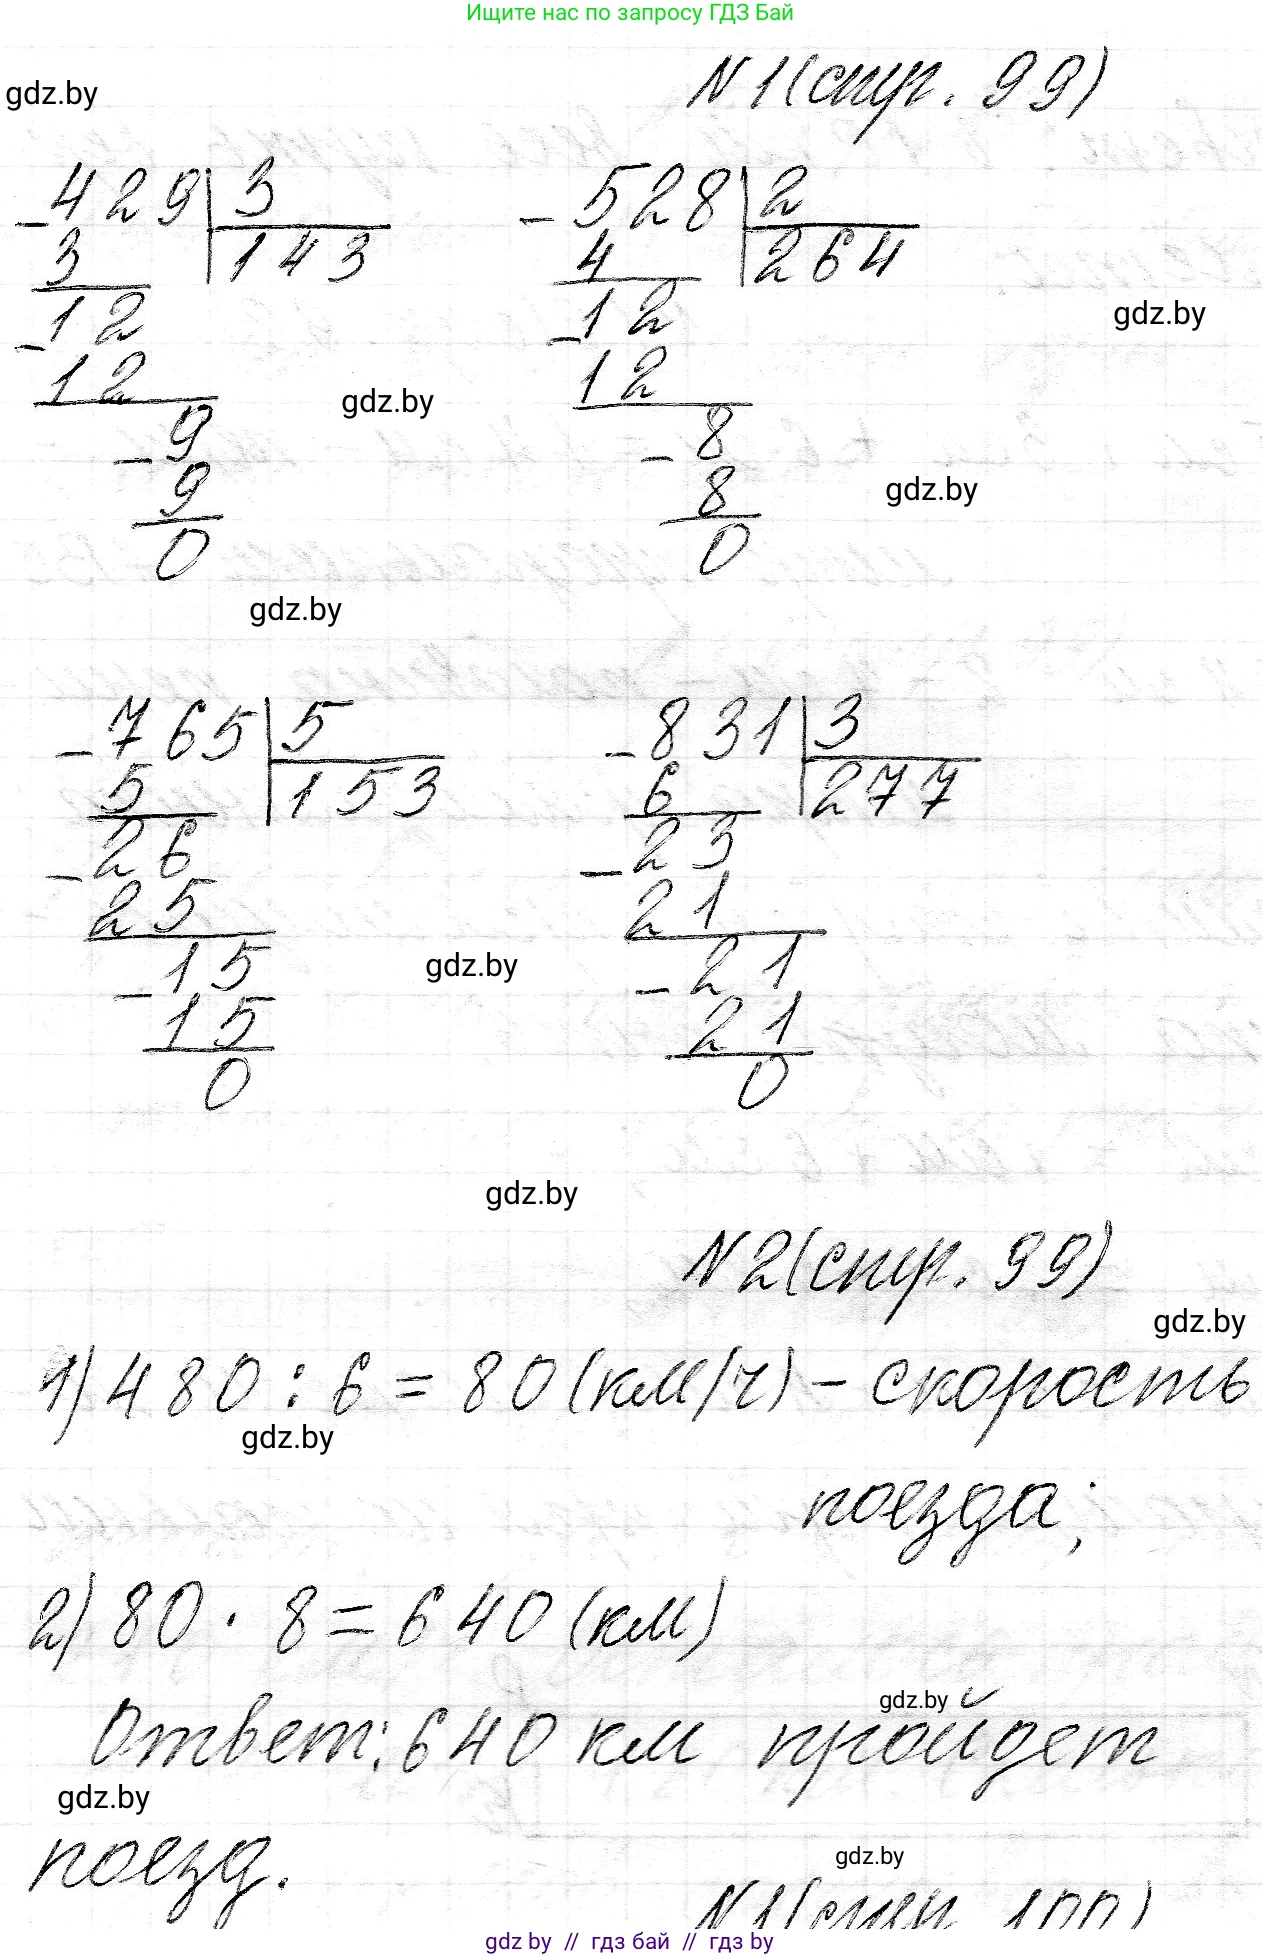 Ищите нас по запросу ГДЗ Бай
N1(стр. 99)
gdz.by
- 429 3
3 143
- 12
12
- 9
9
0
- 528 2
4 264
- 12
12
- 8
8
0
gdz.by
gdz.by
gdz.by
gdz.by
- 765 5
5 153
- 26
25
- 15
15
0
- 831 3
6 277
- 23
21
- 21
21
0
gdz.by
gdz.by
N2(стр. 99)
gdz.by
1) 480 : 6 = 80 (км/ч) – скорость
gdz.by
поезда;
2) 80 · 8 = 640 (км)
gdz.by
Ответ: 640 км пройдет
gdz.by
поезд.
gdz.by
N1(стр. 100)
gdz by // гдз бай // гдз by